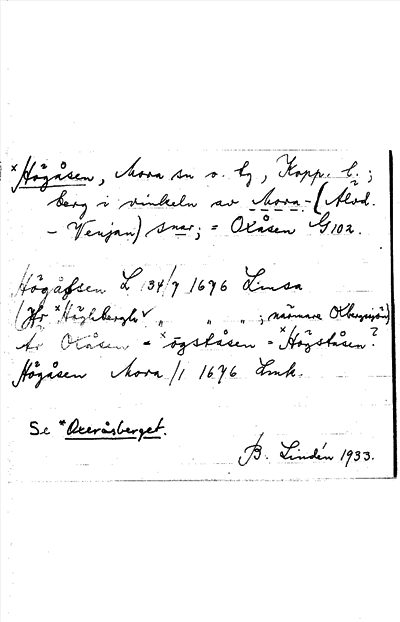 × Högåsen, Mora sn o. hg, Kopp. l.;
berg i vinkeln av Mora-(Älvd.
- Venjan) snar; = Oxåsen G102.
Högåssen L 34/7 1676 Lmsa
(Jfr × Höghberghr " " " ; närmare Oxbergssjön)
Är Oxåsen = × ögståsen = × Högståsen?
Högåsen Mora /1 1676 Lmk.
Se × Oxeråsberget.
B. Lindén 1933.